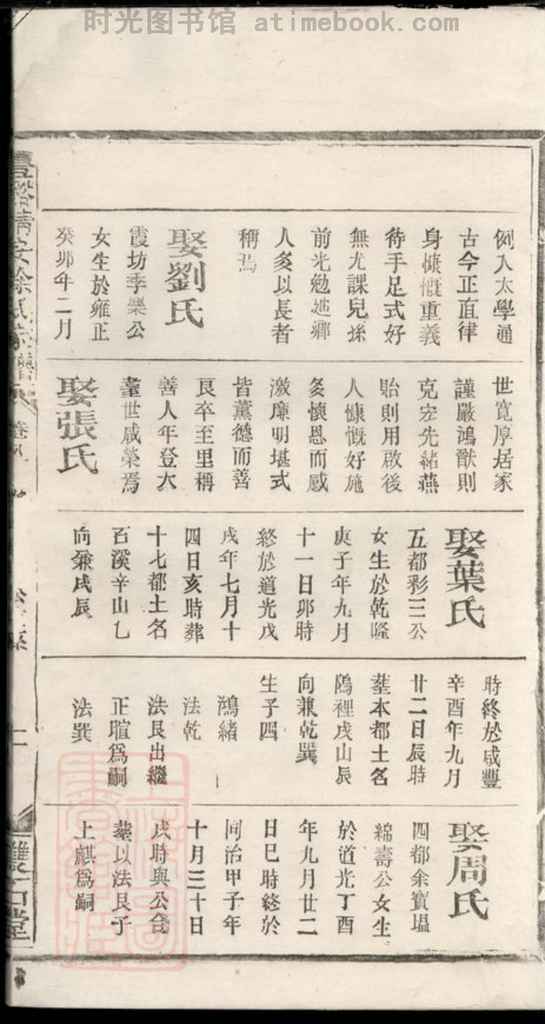 时光图书馆 - atimebook.com
例入太學通
古今正直律
身慷慨重義
待手足式好
無尤課兒孫
前光勉述鄉
人多以長者
稱焉
娶劉氏
霞坊季樂公
女生於雍正
癸卯年二月
世寬厚居家
謹嚴鴻猷則
克宏先緒燕
貽則用啟後
人慷慨好施
多懷恩而感
激廉明堪式
皆薰德而善
良卒至里稱
善人年登大
耋世咸榮焉
娶張氏
娶葉氏
五都彩三公
女生於乾隆
庚子年九月
十一日卯時
終於道光戊
戌年七月十
四日亥時葬
十七都土名
百溪辛山乙
向兼戌辰
時終於咸豐
辛酉年九月
廿二日辰時
塟本都土名
塢裡戌山辰
向兼乾巽
生子四
鴻緒
法乾
法艮出繼
正暄為嗣
法巽
娶周氏
四都余寶塭
綿壽公女生
於道光丁酉
年九月廿二
日巳時終於
同治甲子年
十月三十日
戌時與公合
塟以法艮子
上麒為嗣
徐氏宗譜
雙石堂